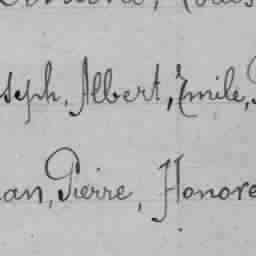 seph, Albert, Emile,
an, Pierre, Honoré